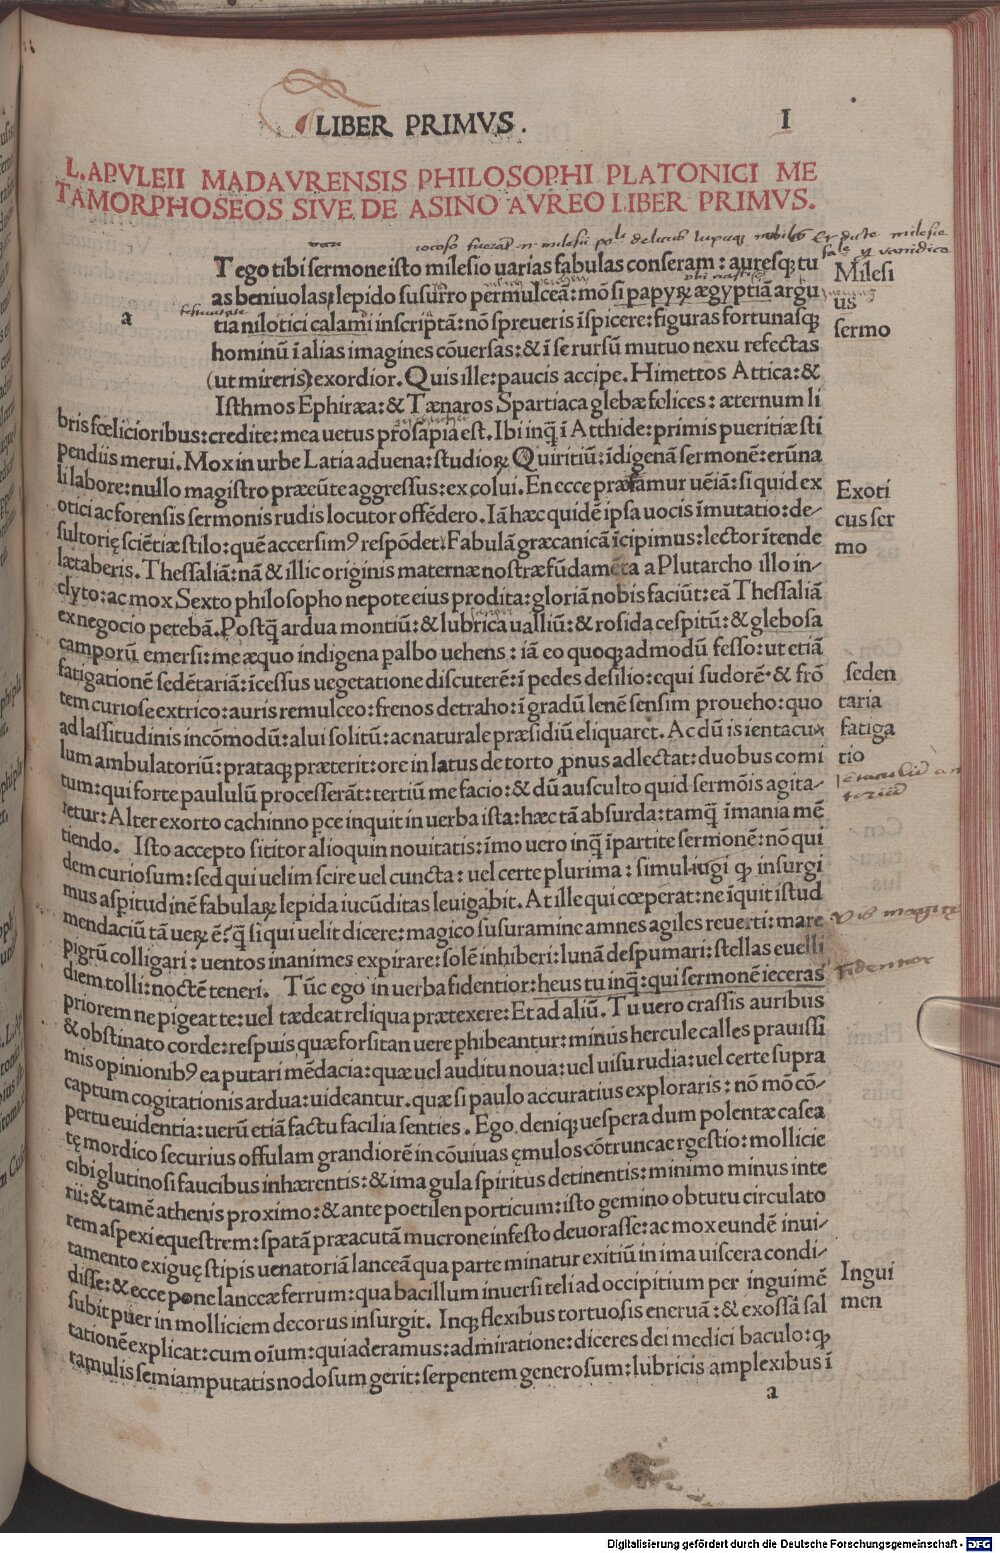 LIBER PRIMVS.
I
L. APVLEII MADAVRENSIS PHILOSOPHI PLATONICI ME
TAMORPHOSEOS SIVE DE ASINO AVREO LIBER PRIMVS.
T ego tibi sermone isto milesio uarias fabulas conseram: auresq; tu
as beniuolas: lepido susurro permulceā: mō si papyꝝ ægyptiā argu
a
tia nilotici calami inscriptā: nō spreueris īspicere: figuras fortunasq;
hominū ī alias imagines cōuersas: & ī se rursū mutuo nexu refectas
(ut mireris) exordior. Quis ille: paucis accipe. Himettos Attica: &
Isthmos Ephiræa: & Tænaros Spartiaca glebæ felices: æternum li
bris fœlicioribus: credite: mea uetus prosapia est. Ibi inq̄ ī Atthide: primis pueritiæ sti
pendiis merui. Mox in urbe Latia aduena: studioꝝ Quiritiū: īdigenā sermonē: erūna
li labore: nullo magistro præeūte aggressus: excolui. En ecce præfamur uēiā: si quid ex
otici ac forensis sermonis rudis locutor offēdero. Iā hæc quidē ipsa uocis īmutatio: de-
sultorię sciētiæ stilo: quē accersimꝰ respōdet. Fabulā græcanicā īcipimus: lector ītende
lætaberis. Thessaliā: nā & illic originis maternæ nostræ fūdamēta a Plutarcho illo in-
clyto: ac mox Sexto philosopho nepote eius prodita: gloriā nobis faciūt: eā Thessaliā
ex negocio petebā. Postq̄ ardua montiū: & lubrica ualliū: & rosida cespitū: & glebosa
camporū emersi: me æquo indigena palbo uehens: iā eo quoq; admodū fesso: ut etiā
fatigationē sedētariā: īcessus uegetatione discuterē: ī pedes desilio: equi sudorē: & frō
tem curiose extrico: auris remulceo: frenos detraho: ī gradū lenē sensim proueho: quo
ad lassitudinis incōmodū: alui solitū: ac naturale præsidiū eliquaret. Ac dū is ientacu
lum ambulatoriū: prataq; præterit: ore in latus detorto ꝓnus adlectat: duobus comi
tum: qui forte paululū processerāt: tertiū me facio: & dū ausculto quid sermōis agita-
retur: Alter exorto cachinno pce inquit in uerba ista: hæc tā absurda: tamq̄ īmania mē
tiendo. Isto accepto sititor alioquin nouitatis: īmo uero inq̄ īpartite sermonē: nō qui
dem curiosum: sed qui uelim scire uel cuncta: uel certe plurima: simul iugi ꝙ insurgi
mus aspitudinē fabulaꝝ lepida iucūditas leuigabit. At ille qui cœperat: ne īquit istud
mendaciū tā ueꝝ ē: q̄ si qui uelit dicere: magico susuramine amnes agiles reuerti: mare
pigrū colligari: uentos inanimes expirare: solē inhiberi: lunā despumari: stellas euelli
diem tolli: noctē teneri. Tūc ego in uerba fidentior: heus tu inq̄: qui sermonē ieceras
priorem ne pigeat te: uel tædeat reliqua prætexere: Et ad aliū. Tu uero crassis auribus
& obstinato corde: respuis quæ forsitan uere phibeantur: minus hercule calles prauissi
mis opinionibꝰ ea putari mēdacia: quæ uel auditu noua: uel uisu rudia: uel certe supra
captum cogitationis ardua: uideantur. quæ si paulo accuratius exploraris: nō mō cō-
pertu euidentia: uerū etiā factu facilia senties. Ego deniq; uespera dum polentæ casea
tę mordico securius offulam grandiorē in cōuiuas ęmulos cōtruncae rgestio: mollicie
cibi glutinosi faucibus inhærentis: & ima gula spiritus detinentis: minimo minus inte
rii: & tamē athenis proximo: & ante poetilen porticum: isto gemino obtutu circulato
rem aspexi equestrem: spatā præacutā mucrone infesto deuorasse: ac mox eundē inui-
tamento exiguę stipis uenatoriā lanceā qua parte minatur exitiū in ima uiscera condi-
disse: & ecce pone lanceæ ferrum: qua bacillum inuersi teli ad occipitium per inguimē
subit puer in molliciem decorus insurgit. Inq; flexibus tortuosis eneruā: & exossā sal
tationē explicat: cum oīum: qui aderamus: admiratione: diceres dei medici baculo: ꝙ
ramulis semiamputatis nodosum gerit: serpentem generosum: lubricis amplexibus ī
a
Milesi
us
sermo
Exoti
cus ser
mo
seden
taria
fatiga
tio
Ingui
men
Digitalisierung gefördert durch die Deutsche Forschungsgemeinschaft - DFG